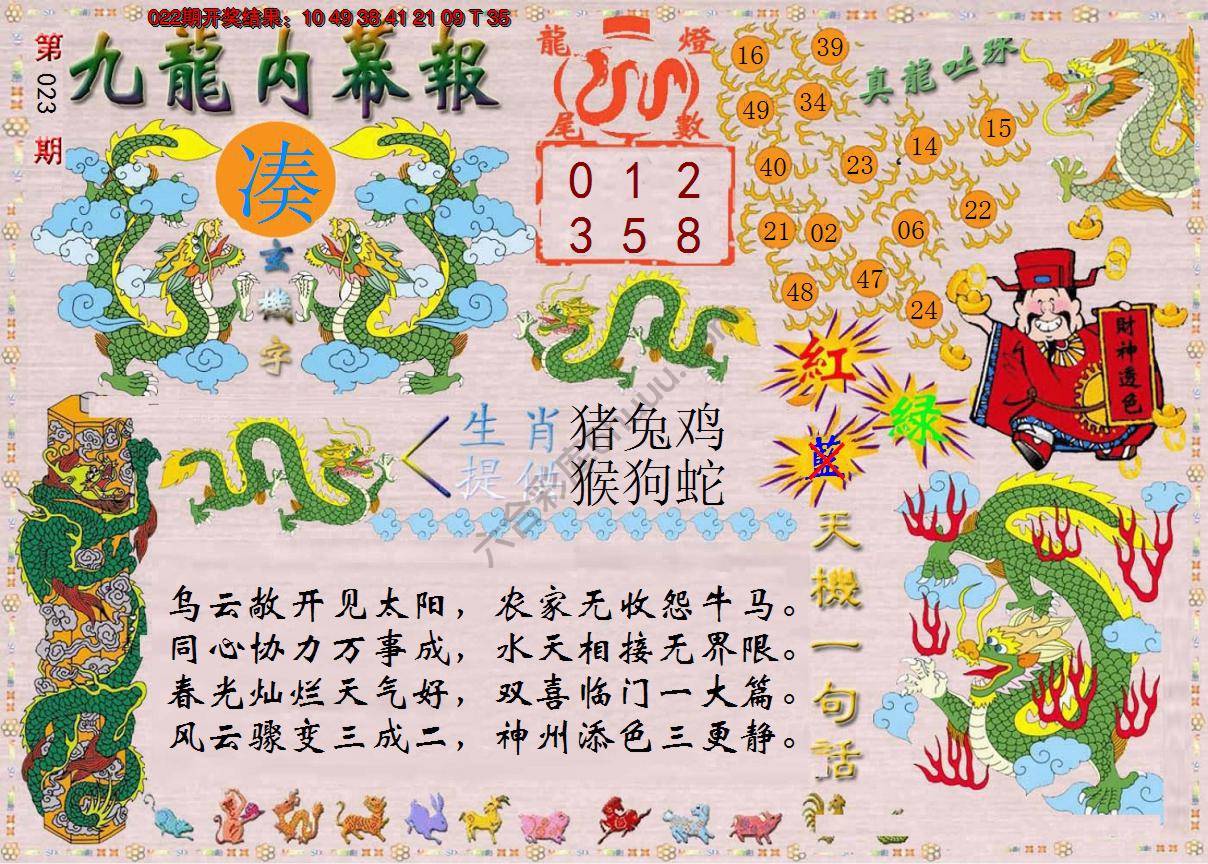 022期开奖结果：10 49 38 41 21 09 T 35
第023期
九龍内幕報
凑
玄機字
龍燈
尾數
0 1 2
3 5 8
真龍吐珠
16 39
49 34
40 23 14 15
21 02 06 22
48 47 24
財神透色
紅
綠
藍
生肖 猪兔鸡
提供 猴狗蛇
天機一句話
乌云敞开见太阳，农家无收怨牛马。
同心协力万事成，水天相接无界限。
春光灿烂天气好，双喜临门一大篇。
风云骤变三成二，神州添色三更静。